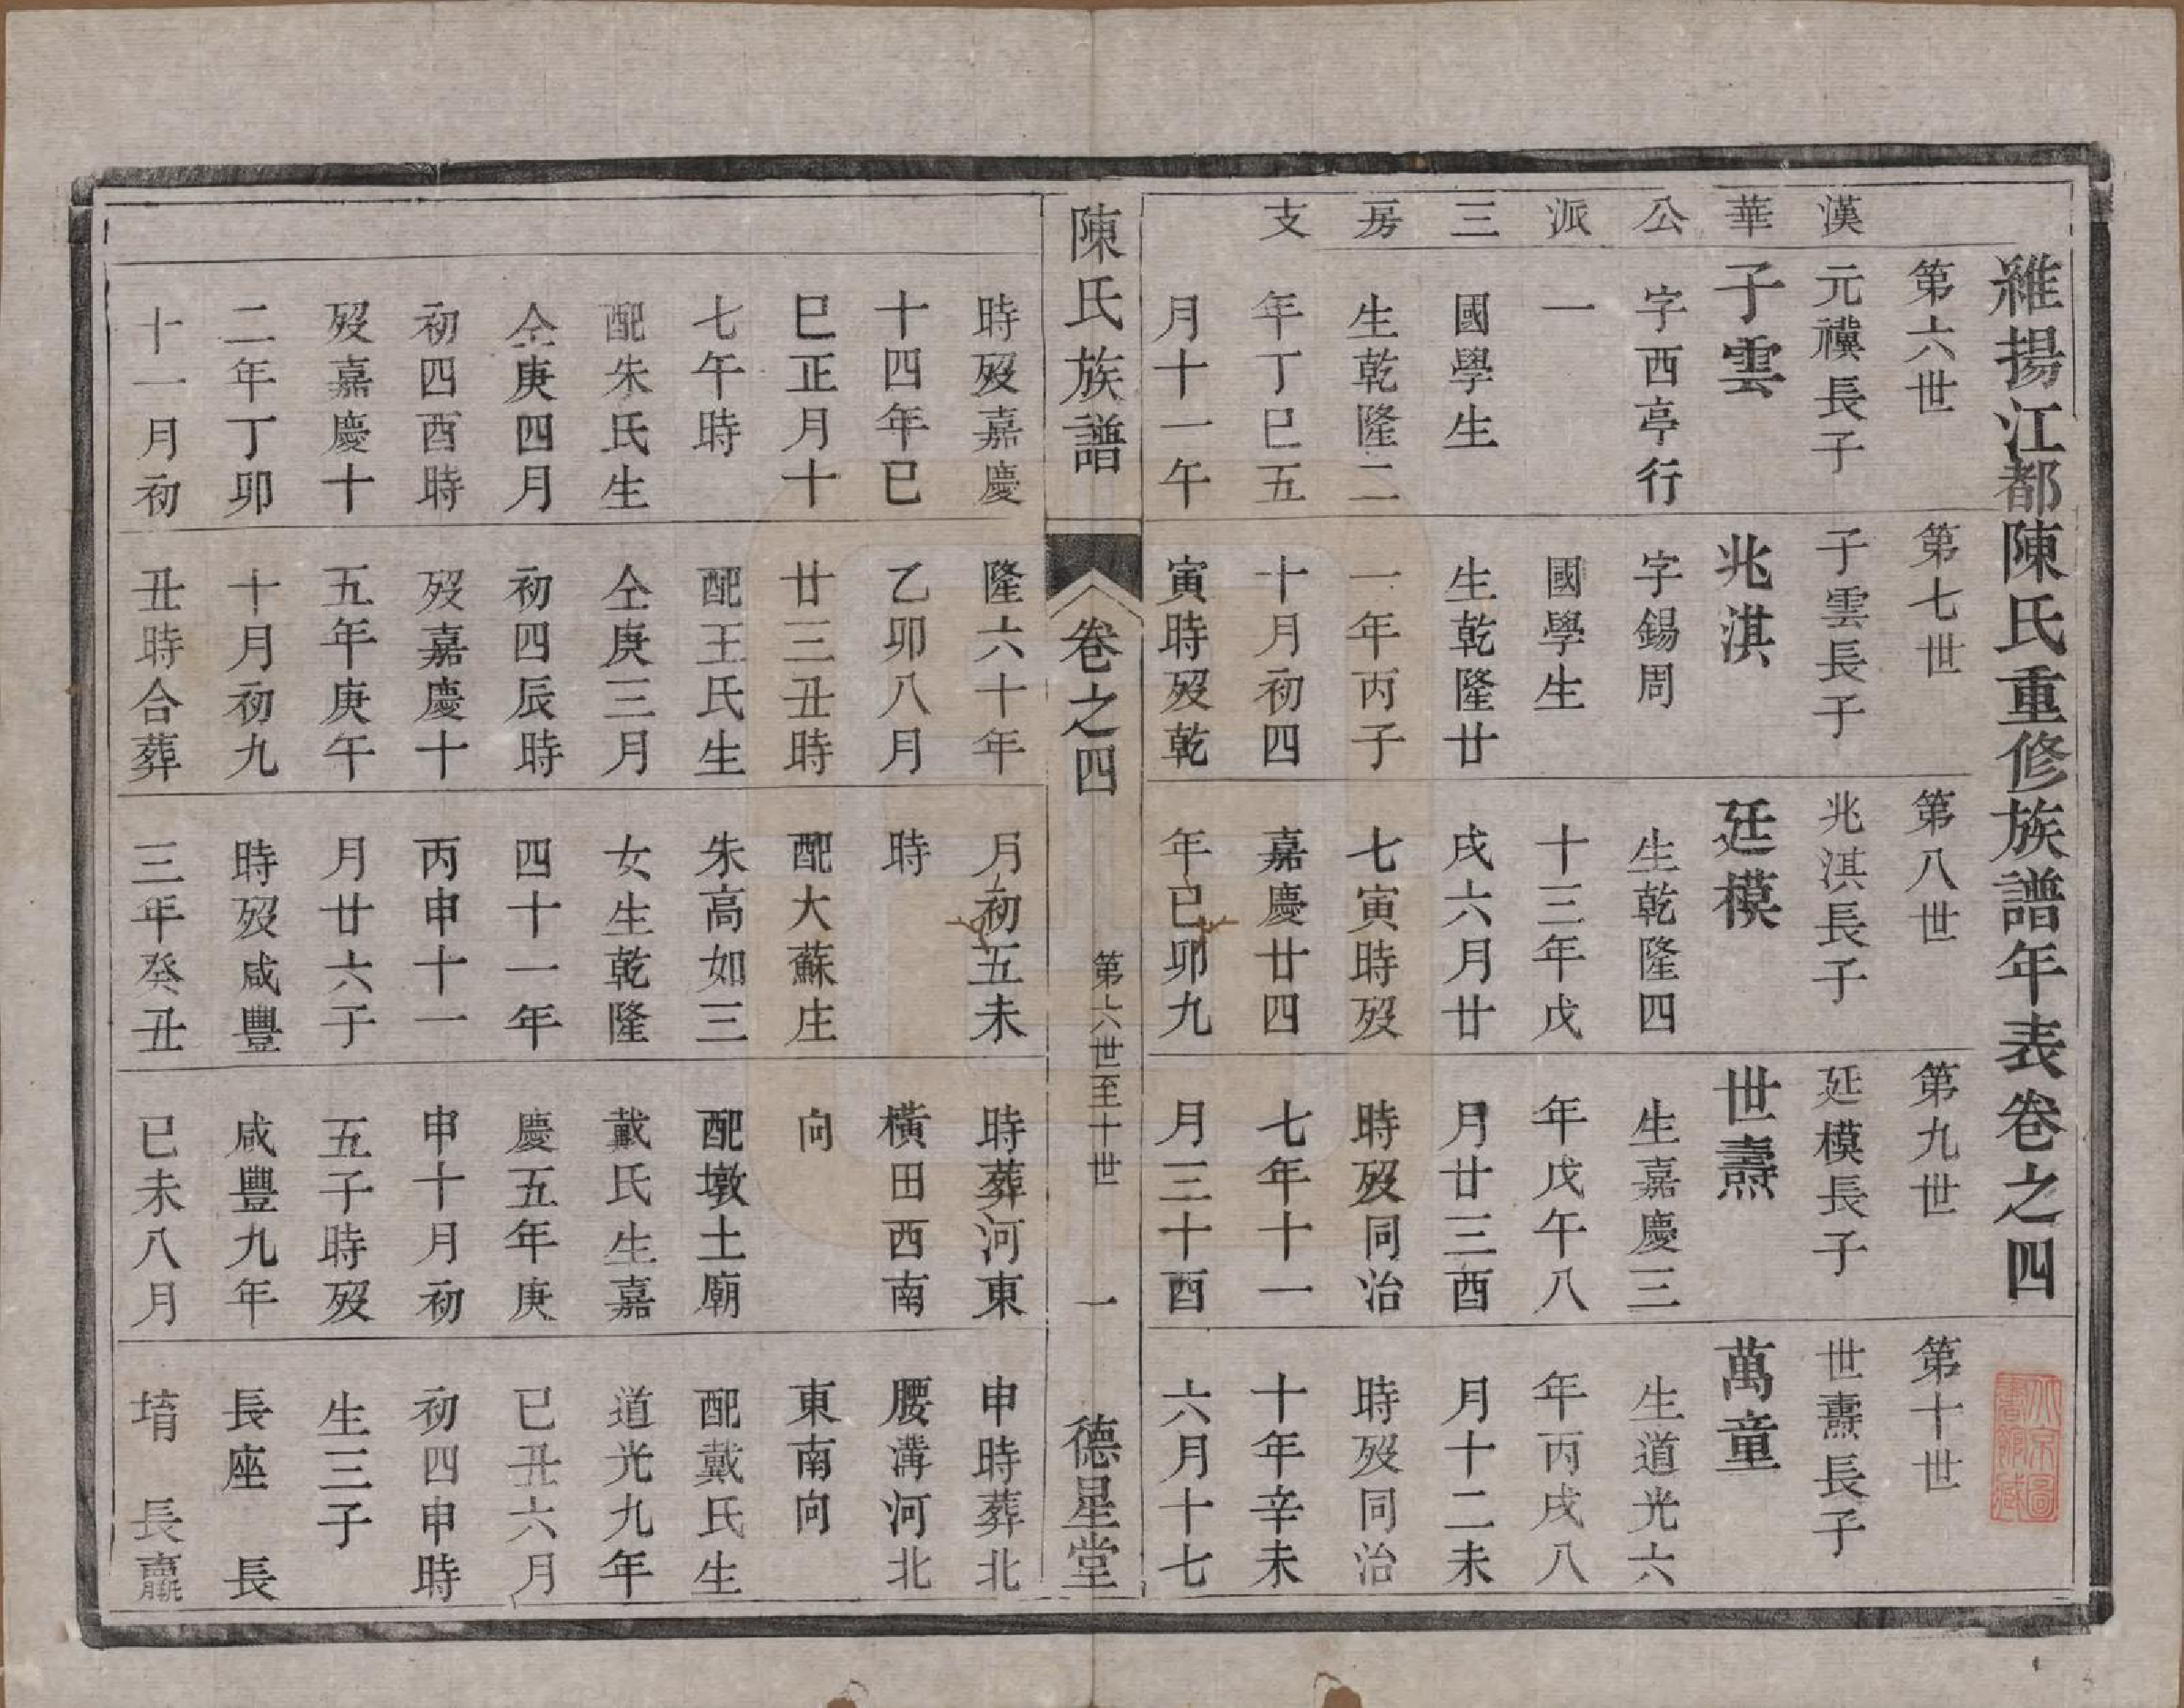 維揚江都陳氏重修族譜年表卷之四
漢華公派三房支
第六世
元禩長子
子雲
字西亭行
一
國學生
生乾隆二
年丁巳五
月十一午
時歿嘉慶
十四年巳
巳正月十
七午時
配朱氏生
仝庚四月
初四酉時
歿嘉慶十
二年丁卯
十一月初
第七世
子雲長子
兆淇
字錫周
國學生
生乾隆廿
一年丙子
十月初四
寅時歿乾
隆六十年
乙卯八月
廿三丑時
配王氏生
仝庚三月
初四辰時
歿嘉慶十
五年庚午
十月初九
丑時合葬
第八世
兆淇長子
廷模
生乾隆四
十三年戊
戌六月廿
七寅時歿
嘉慶廿四
年已卯九
月初五未
時
配大蘇庄
朱高如三
女生乾隆
四十一年
丙申十一
月廿六子
時歿咸豐
三年癸丑
第九世
延模長子
世燾
生嘉慶三
年戊午八
月廿三酉
時歿同治
七年十一
月三十酉
時葬河東
橫田西南
向
配墩土廟
戴氏生嘉
慶五年庚
申十月初
五子時歿
咸豐九年
已未八月
第十世
世燾長子
萬童
生道光六
年丙戌八
月十二未
時歿同治
十年辛未
六月十七
申時葬北
腰溝河北
東南向
配戴氏生
道光九年
已丑六月
初四申時
生三子
長座 長
堉 長
陳氏族譜
卷之四
第六世至十世
一
德星堂